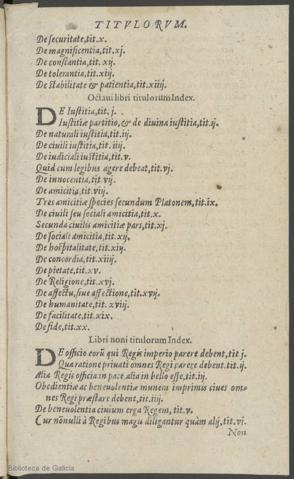 TITVLORVM.
De securitate,tit.x.
De magnificentia,tit.xj.
De constantia,tit.xij.
De tolerantia,tit.xiij.
De stabilitate & patientia,tit.xiiij.
Octaui libri titulorum Index.
DE Iustitia,tit.j.
Iustitiæ partitio,& de diuina iustitia,tit.ij.
De naturali iustitia,tit.iij.
De ciuili iustitia,tit.iiij.
De iudiciali iustitia,tit.v.
Quid cum legibus agere debeat,tit.vj.
De innocentia,tit.vij.
De amicitia,tit.viij.
Tres amicitiæ species secundum Platonem,tit.ix.
De ciuili seu sociali amicitia,tit.x.
Secunda ciuilis amicitiæ pars,tit.xj.
De sociali amicitia,tit.xij.
De hospitalitate,tit.xiij.
De concordia,tit.xiiij.
De pietate,tit.xv.
De Religione,tit.xvj.
De affectu,siue affectione,tit.xvij.
De humanitate,tit.xviij.
De facilitate,tit.xix.
De fide,tit.xx.
Libri noni titulorum Index.
DE officio eorũ qui Regis imperio parere debent,tit j.
Qua ratione priuati omnes Regi parere debent.tit.ij.
Alia Regis officia in pace alia in bello esse,tit.iij.
Obedientiæ ac beneuolentiæ munera imprimis ciues om-
nes Regi præstare debent,tit.iiij.
De beneuolentia ciuium erga Regem,tit.v.
Cur nõnulli à Regibus magis diligantur quàm alij,tit.vj.
Non
Biblioteca de Galicia